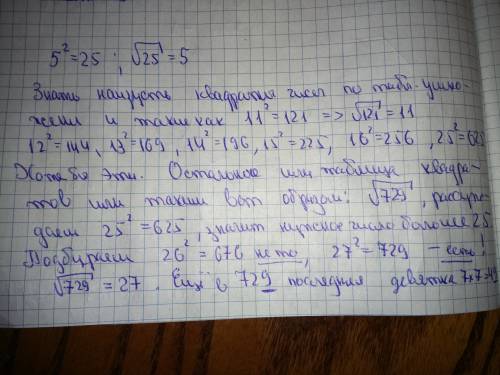 5² = 25 ; √25 = 5
Знать наизусть квадраты чисел по табл. умно-
жения и такие как 11² = 121 => √121 = 11
12² = 144, 13² = 169, 14² = 196, 15² = 225, 16² = 256, 25² = 625
Хотя бы эти. Остальное или таблица квадра-
тов или таким вот образом: √729, рассуж-
даем 25² = 625, значит нужное число более 25
Подбираем 26² = 676 не то, 27² = 729 – есть!
√729 = 27. Ещё в 729 последняя девятка 7×7=49